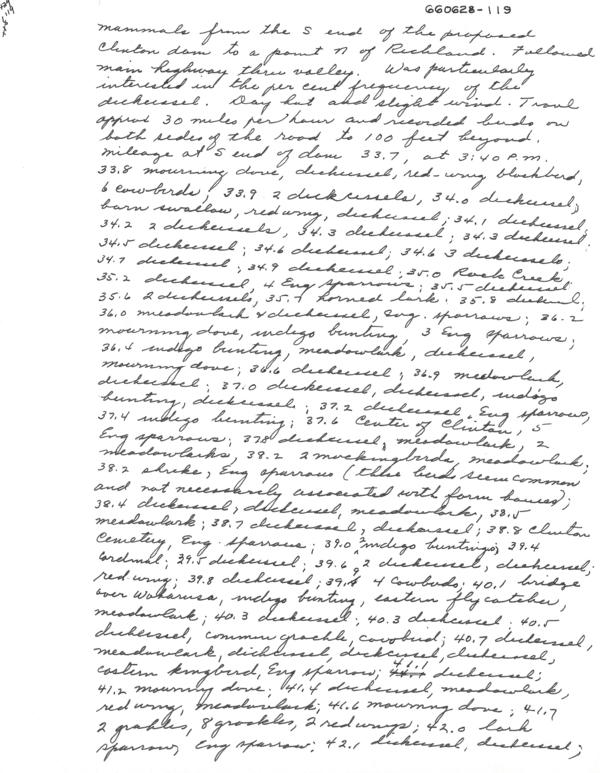 660628-119
mammals from the S end of the proposed
Clinton dam to a point N of Richland. Followed
main highway thru valley. Was particularly
interested in the per cent frequency of the
dickcissel. Day hot and slight wind. Travel
approx 30 miles per hour and recorded birds on
both sides of the road to 100 feet beyond.
mileage at S end of dam 33.7, at 3:40 P.M.
33.8 mourning dove, dickcissel, red-wing blackbird,
6 cowbirds, 33.9 2 dickcissels, 34.0 dickcissel,
barn swallow, redwing, dickcissel; 34.1 dickcissel;
34.2 2 dickcissels, 34.3 dickcissel; 34.3 dickcissel;
34.5 dickcissel; 34.6 dickcissel; 34.6 3 dickcissels;
34.7 dickcissel; 34.9 dickcissel; 35.0 Rock Creek
35.2 dickcissel, 4 Eng sparrows; 35.5 dickcissel
35.6 2 dickcissels, 35.7 horned lark. 35.8 dickcissel;
36.0 meadowlark & dickcissel, Eng. sparrows; 36.2
mourning dove, indigo bunting, 3 Eng sparrows;
36.4 indigo bunting, meadowlark, dickcissel,
mourning dove; 36.6 dickcissel; 36.9 medowlark,
dickcissel; 37.0 dickcissel, dickcissel, indigo
bunting, dickcissel; 37.2 dickcissel, Eng sparrow,
37.4 indigo bunting; 37.6 Center of Clinton, 5
Eng sparrows; 37.8 dickcissel, meadowlark, 2
meadowlarks, 38.2 2 mockingbirds, meadowlark;
38.2 shrike, Eng sparrows (these birds seem common
and not necessarily associated with farm houses);
38.4 dickcissel, dickcissel, meadowlark, 38.5
meadowlark; 38.7 dickcissel, dickcissel; 38.8 Clinton
Cemetery, Eng. sparrows; 39.0 2 indigo buntings, 39.4
Cardinal; 39.5 dickcissel; 39.6 2 dickcissel, dickcissel;
redwing; 39.8 dickcissel; 39.9 4 cowbirds; 40.1 bridge
over Wakarusa, indigo bunting, eastern flycatcher,
meadowlark; 40.3 dickcissel; 40.3 dickcissel; 40.5
dickcissel, common grackle, cowbird; 40.7 dickcissel,
meadowlark, dickcissel, dickcissel, dickcissel,
eastern kingbird, Eng sparrow; 41.1 dickcissel;
41.2 mourning dove; 41.4 dickcissel, meadowlark,
redwing, meadowlark; 41.6 mourning dove; 41.7
2 grakles, 8 grackles, 2 redwings; 42.0 lark
sparrow, Eng sparrow; 42.1 dickcissel, dickcissel;